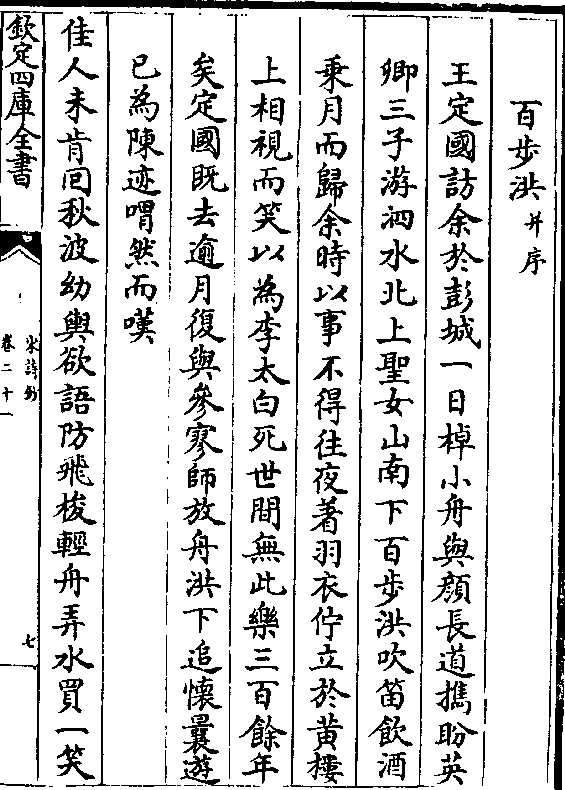 百步洪并序
王定國訪余於彭城一日棹小舟與顔長道攜盼英
卿三子游泗水北上聖女山南下百步洪吹笛飲酒
乗月而歸余時以事不得往夜著羽衣佇立於黄樓
上相視而笑以為李太白死世間無此樂三百餘年
矣定國既去逾月復與參寥師放舟洪下追懷曩遊
已為陳迹喟然而嘆
佳人未肯回秋波幼輿欲語防飛梭輕舟弄水買一笑
欽定四庫全書
宋詩鈔
卷二十一
七